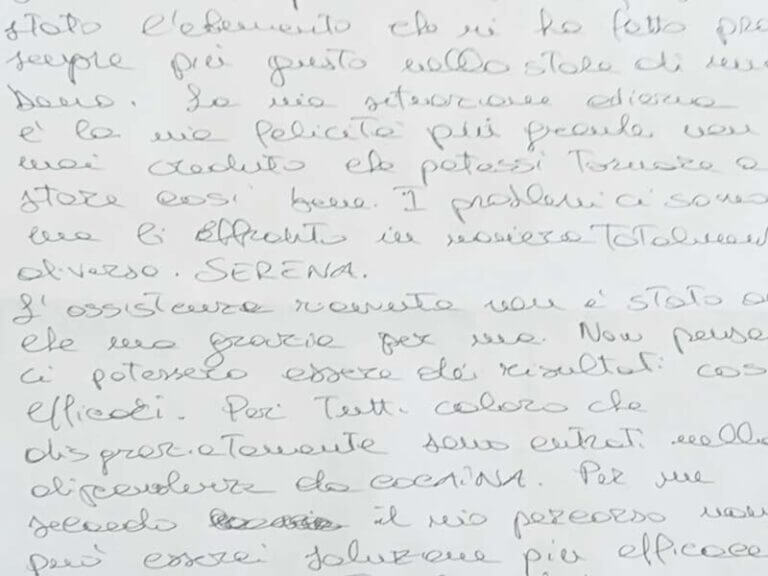 stato l'elemento che mi ha fatto
sempre più questo nello stare di
La mia situazione odierna
è la mia felicità più grande. non
mai creduto che potessi Tornare a
stare così bene. I problemi ci sono
ma li affronto in maniera Totalmen
diversa. SERENA.
L'assistenza ricevuta non è stato a
che una grazia per me. Non pensa
ci potessero essere dei risultati cos
efficaci. Per Tutti coloro che
disgraziatamente sono entrati nella
dipendenza da COCAINA. Per me
secondo il mio percorso non
può esserci soluzione più efficace